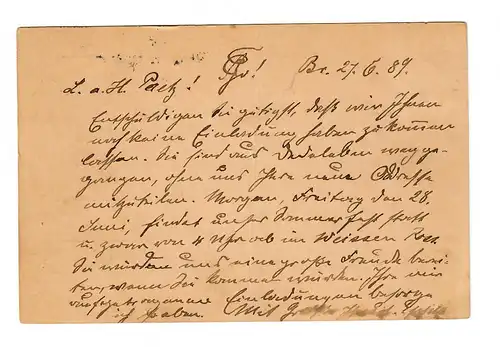 L. a. H. Paetz! Br. 27. 6. 89.
Entschuldigen Sie gütigst, daß wir Ihnen
noch keine Einladung haben zukommen
lassen. Sie sind aus Dedeleben wegge-
gangen, ohne uns Ihre neue Adresse
mitzuteilen. Morgen, Freitag den 28.
Juni, findet unser Sommerfest statt
u. zwar von 4 Uhr ab im Weissen
Sie würden uns eine große Freude berei-
ten, wenn Sie kommen würden. Ihre mir
aufgetragenen Einladungen besorgt
ich haben. Mit